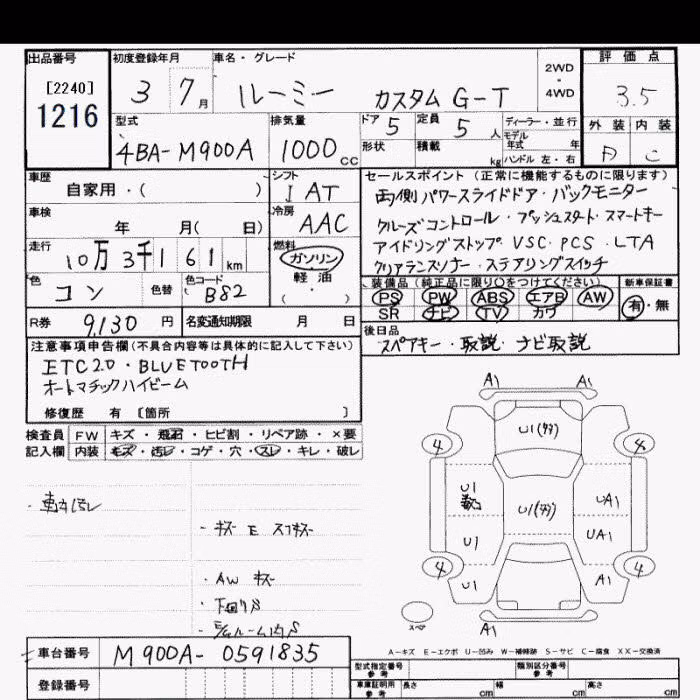 出品番号 初度登録年月 車名・グレード 評価点
[2240]
1216
3 7月 ルーミー カスタム G-T 2WD・4WD 3.5
型式 排気量 ドア 5 定員 5人 ディーラー・並行 外装 内装
4BA-M900A 1000cc 形状 積載 kg モデル年式 年 ハンドル 左・右 C
車歴 シフト セールスポイント(正常に機能するものに限ります)
自家用・( ) I AT 両側パワースライドドア・バックモニター
車検 冷房 クルーズコントロール・プッシュスタート・スマートキー
年 月( 日) AAC アイドリングストップ VSC・PCS・LTA
走行 燃料 クリアランスソナー・ステアリングスイッチ
10万3千161km ガソリン 装備品(純正品に限り○をつけてください) 新車保証書
色 色替 色コード 軽油 PS PW ABS エアB AW 有・無
コン B82 ( ) SR ナビ TV カワ
R券 9,130円 名変通知期限 月 日 後日品
スペアキー・取説・ナビ取説
注意事項申告欄(不具合内容等は具体的に記入して下さい)
ETC2.0・BLUETOOTH
オートマチックハイビーム
修復歴 有 〔箇所 〕
検査員 FW キズ・飛石・ヒビ割・リペア跡・×要
記入欄 内装 キズ・汚レ・コゲ・穴・スレ・キレ・破レ
A1 A1
U1(タタ)
4 4
U1 UA1
U1(タタ)
U1 UA1
4 4
U1 A1
スペア A1
・キズ E スリキズ
・AW キズ
・下回りS
A-キズ E-エクボ U-凹み W-補修跡 S-サビ C-腐食 XX-交換済
車台番号 M900A-0591835 型式指定番号 参考 類別区分番号 参考
登録番号 車庫証明用 参考 長さ cm 幅 cm 高さ cm